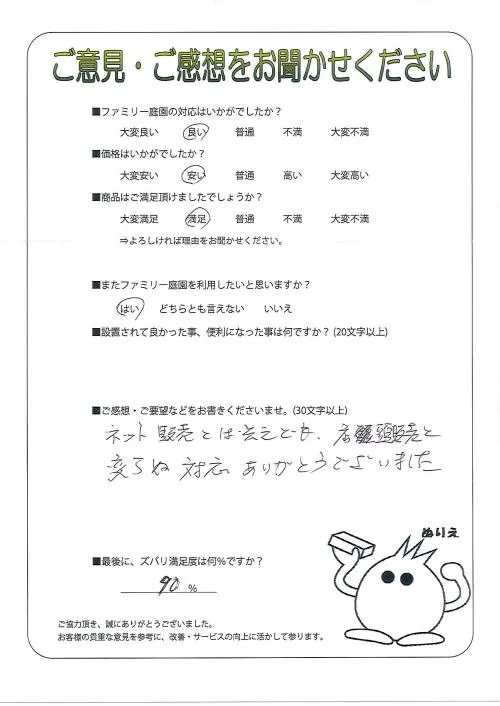 ご意見・ご感想をお聞かせください
■ファミリー庭園の対応はいかがでしたか？
大変良い 良い 普通 不満 大変不満
■価格はいかがでしたか？
大変安い 安い 普通 高い 大変高い
■商品はご満足頂けましたでしょうか？
大変満足 満足 普通 不満 大変不満
⇒よろしければ理由をお聞かせください。
■またファミリー庭園を利用したいと思いますか？
はい どちらとも言えない いいえ
■設置されて良かった事、便利になった事は何ですか？(20文字以上)
■ご感想・ご要望などをお書きくださいませ。(30文字以上)
ネット販売とは言えども、店頭販売と
変らぬ対応ありがとうございました
ぬりえ
■最後に、ズバリ満足度は何%ですか？
90 %
ご協力頂き、誠にありがとうございました。
お客様の貴重な意見を参考に、改善・サービスの向上に活かして参ります。